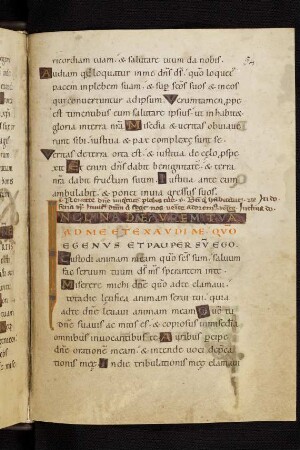 ricordiam tuam: & salutare tuum da nobis.
Audiam
pacem inplebem suam: & sup scos suos & ineos
qui convertuntur adipsum Verumtamen ppe
est timentibus eum salutare ipsius: ut inhabit&
gloria interra nra Misedia & veritas obviaver
sibi: iustitia & pax complexe sunt se.
Veritas deterra orta est: & iustitia de celo pspex
it Etenim dns dabit benignitate: & terra
nra dabit fructum suum Iustitia ante eum
ambulabit: & ponet inuia gressus suos.
INCLINA DNE AUREM TUA
AD ME ET EXAUDI ME QUO
EGENUS ET PAUPER SU EGO.
Custodi animam meam quo scs sum: salvum
fac servum tuum ds ms sperantem inte
Miserere michi dne quo adte clamavi
tota die letifica animam servi tui: quia
adte dne animam meam levavi Qm tu
dne suavis ac mitis es: & copiosus inmisedia
omnibus invocantibus te Auribus pcipe
dne orationem meam: & intende voci depca
tionis mee Indie tribulationis mee clamavi